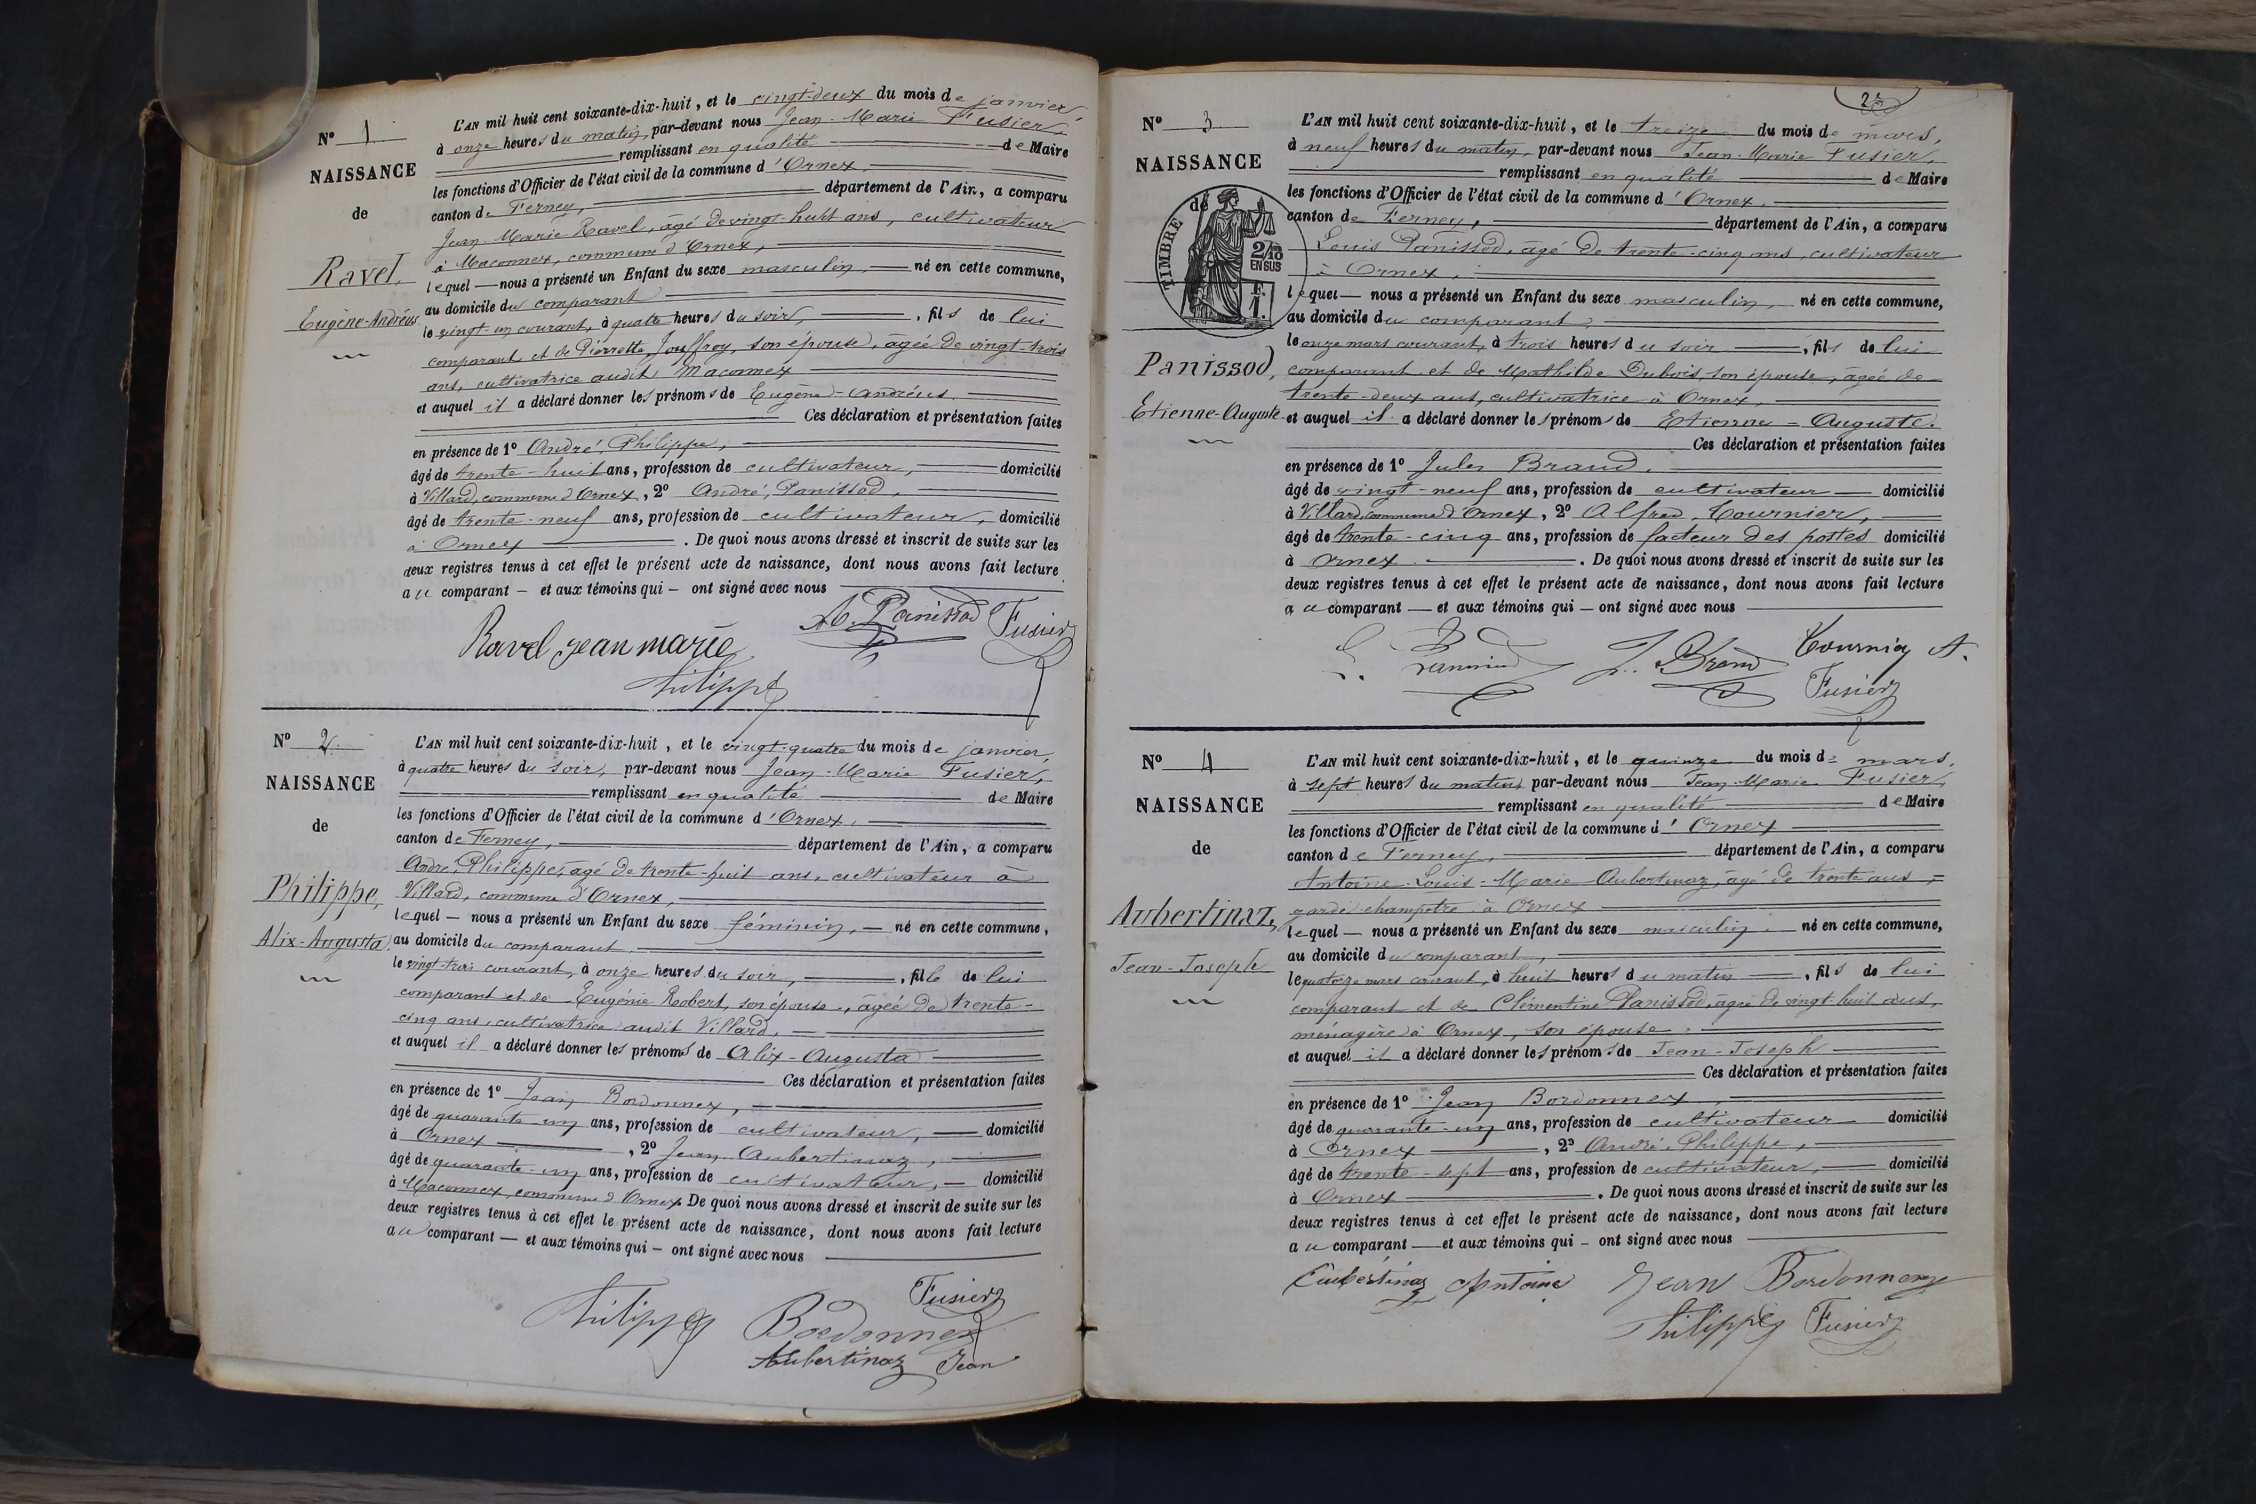 N° 1
NAISSANCE
de
Ravel,
Eugène-Andréus
L'AN mil huit cent soixante-dix-huit, et le vingt-deux du mois de janvier
à onze heures du matin, par-devant nous Jean-Marie Fusier,
remplissant en qualité de Maire
les fonctions d'Officier de l'état civil de la commune d'Ornex.
canton de Ferney, département de l'Ain, a comparu
Jean-Marie Ravel, âgé de vingt-huit ans, cultivateur
à Maconnex, commune d'Ornex,
lequel — nous a présenté un Enfant du sexe masculin, né en cette commune,
au domicile du comparant
le vingt-un courant, à quatre heures du soir, fils de lui
comparant et de Pierrette Jouffroy, son épouse, agée de vingt-trois
ans, cultivatrice audit Maconnex
et auquel il a déclaré donner les prénoms de Eugène-Andréus.
Ces déclaration et présentation faites
en présence de 1° André Philippe,
âgé de trente-huit ans, profession de cultivateur, domicilié
à Villard, commune d'Ornex, 2° André Panissod,
âgé de trente-neuf ans, profession de cultivateur, domicilié
à Ornex. De quoi nous avons dressé et inscrit de suite sur les
deux registres tenus à cet effet le présent acte de naissance, dont nous avons fait lecture
au comparant — et aux témoins qui — ont signé avec nous
Ravel jean marie A. Panissod Fusier
Philippe
N° 2.
NAISSANCE
de
Philippe,
Alix-Augusta
L'AN mil huit cent soixante-dix-huit, et le vingt-quatre du mois de janvier,
à quatre heures du soir, par-devant nous Jean-Marie Fusier,
remplissant en qualité de Maire
les fonctions d'Officier de l'état civil de la commune d'Ornex.
canton de Ferney, département de l'Ain, a comparu
André Philippe, âgé de trente-huit ans, cultivateur à
Villard, commune d'Ornex,
lequel — nous a présenté un Enfant du sexe féminin, — né en cette commune,
au domicile du comparant.
le vingt-trois courant, à onze heures du soir, fille de lui
comparant et de Eugénie Robert, son épouse, âgée de trente-
cinq ans, cultivatrice audit Villard.
et auquel il a déclaré donner les prénoms de Alix-Augusta
Ces déclaration et présentation faites
en présence de 1° Jean Bordonnex,
âgé de quarante-un ans, profession de cultivateur, domicilié
à Ornex, 2° Jean Aubertinaz,
âgé de quarante-un ans, profession de cultivateur, — domicilié
à Maconnex, commune d'Ornex. De quoi nous avons dressé et inscrit de suite sur les
deux registres tenus à cet effet le présent acte de naissance, dont nous avons fait lecture
au comparant — et aux témoins qui — ont signé avec nous
Fusier
Philippe Bordonnex
Aubertinaz Jean
N° 3
NAISSANCE
de
TIMBRE
2/10
EN SUS
F.
1.
Panissod,
Etienne-Auguste
L'AN mil huit cent soixante-dix-huit, et le treize du mois de mars,
à neuf heures du matin, par-devant nous Jean-Marie Fusier,
remplissant en qualité de Maire
les fonctions d'Officier de l'état civil de la commune d'Ornex.
canton de Ferney, département de l'Ain, a comparu
Louis Panissod, âgé de trente-cinq ans, cultivateur
à Ornex,
lequel — nous a présenté un Enfant du sexe masculin, né en cette commune,
au domicile du comparant,
le onze mars courant, à trois heures du soir, fils de lui
comparant et de Mathilde Dubois, son épouse, âgée de
trente-deux ans, cultivatrice à Ornex,
et auquel il a déclaré donner les prénoms de Etienne-Auguste.
Ces déclaration et présentation faites
en présence de 1° Jules Brand,
âgé de vingt-neuf ans, profession de cultivateur — domicilié
à Villard, commune d'Ornex, 2° Alfred Tournier,
âgé de trente-cinq ans, profession de facteur des postes domicilié
à Ornex. De quoi nous avons dressé et inscrit de suite sur les
deux registres tenus à cet effet le présent acte de naissance, dont nous avons fait lecture
au comparant — et aux témoins qui — ont signé avec nous
J. Brand Tournier A.
Fusier
N° 4
NAISSANCE
de
Aubertinaz,
Jean-Joseph
L'AN mil huit cent soixante-dix-huit, et le quinze du mois de mars,
à sept heures du matin, par-devant nous Jean-Marie Fusier,
remplissant en qualité de Maire
les fonctions d'Officier de l'état civil de la commune d'Ornex
canton de Ferney, département de l'Ain, a comparu
Antoine-Louis-Marie Aubertinaz, âgé de trente ans,
garde champetre à Ornex
lequel — nous a présenté un Enfant du sexe masculin. né en cette commune,
au domicile du comparant,
le quatorze mars courant, à huit heures du matin, fils de lui
comparant et de Clémentine Panissod, agée de vingt-huit ans,
ménagère à Ornex, son épouse.
et auquel il a déclaré donner les prénoms de Jean-Joseph
Ces déclaration et présentation faites
en présence de 1° Jean Bordonnex,
âgé de quarante-un ans, profession de cultivateur domicilié
à Ornex, 2° André Philippe,
âgé de trente-sept ans, profession de cultivateur, domicilié
à Ornex. De quoi nous avons dressé et inscrit de suite sur les
deux registres tenus à cet effet le présent acte de naissance, dont nous avons fait lecture
au comparant — et aux témoins qui — ont signé avec nous
Aubertinaz Antoine Jean Bordonnex
Philippe Fusier